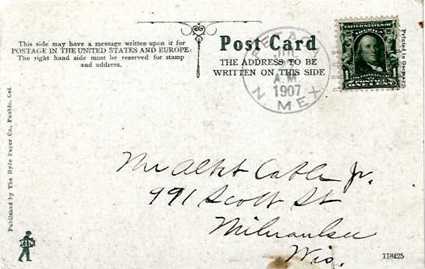 This side may have a message written upon it for
POSTAGE IN THE UNITED STATES AND EUROPE.
The right hand side must be reserved for stamp
and address.
Post Card
THE ADDRESS TO BE
WRITTEN ON THIS SIDE
A.M.
1907
N. MEX
1 1
Printed in Germany
Published by The Hyde Paper Co., Pueblo, Col.
Mr Albt Cable Jr.
991 Scott St
Milwaukee
Wis.
118425